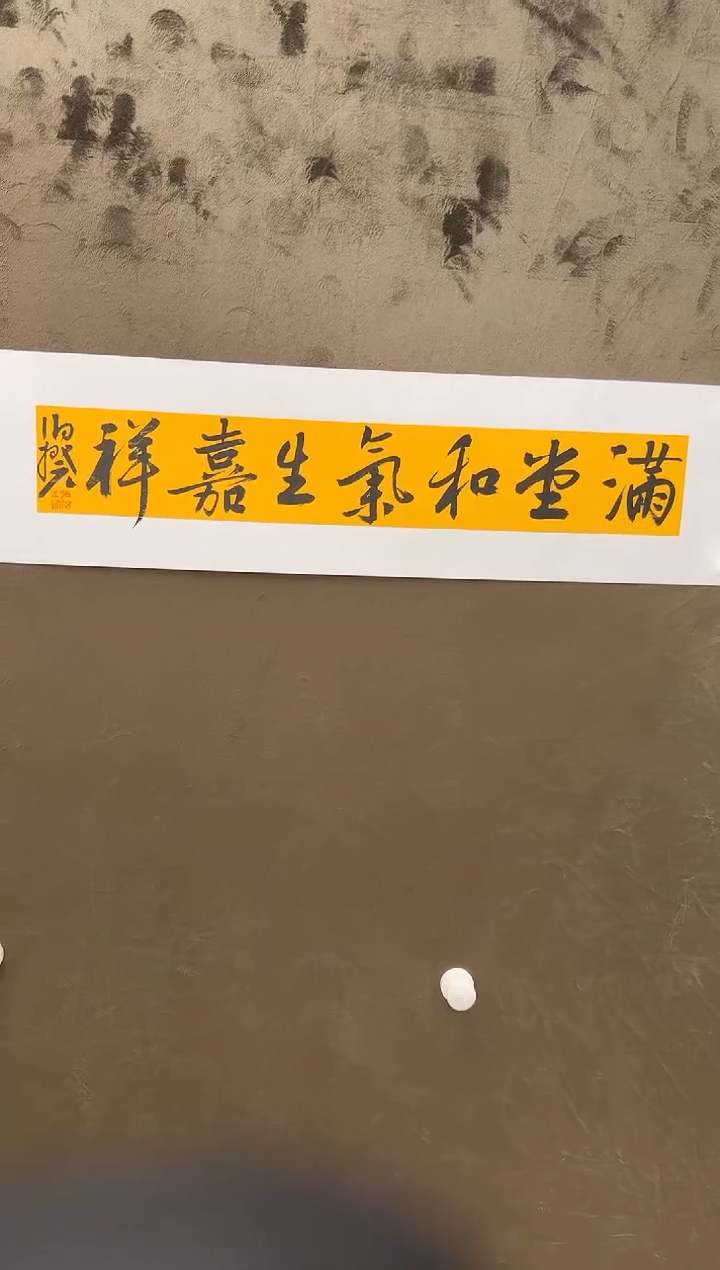 滿堂和氣生嘉祥